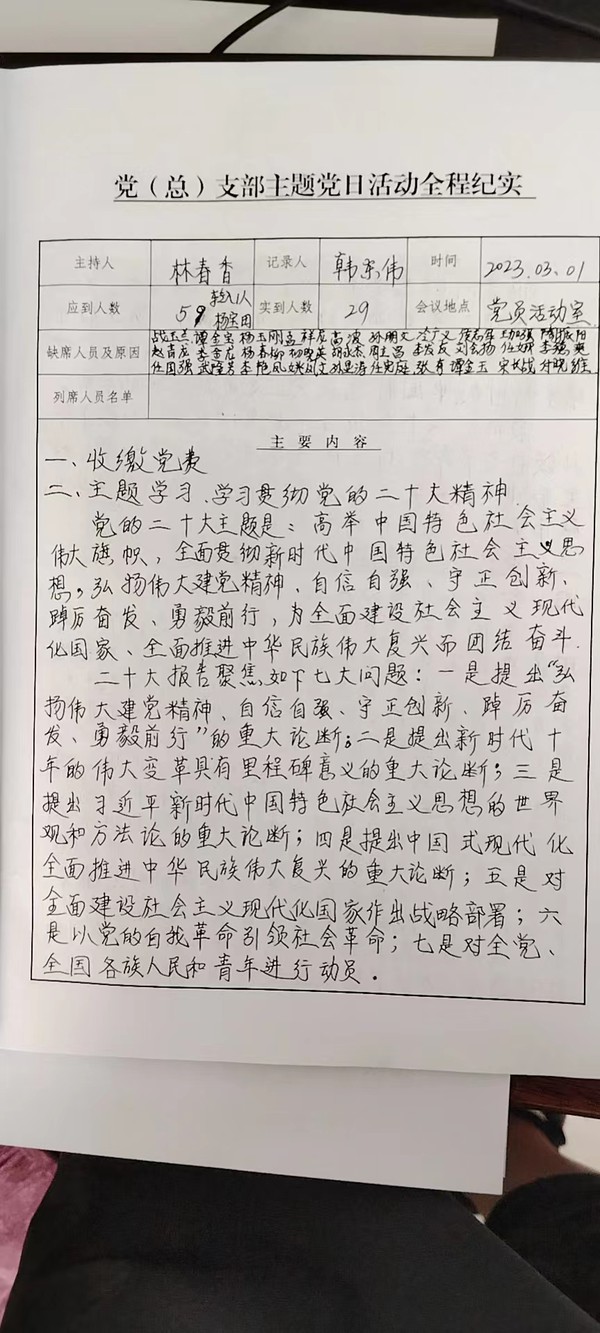 党（总）支部主题党日活动全程纪实
主持人 林春香 记录人 韩东伟 时间 2023.03.01
应到人数 59 杨宝田 实到人数 29 会议地点 党员活动室
缺席人员及原因
列席人员名单
主要内容
一、收缴党费
二、主题学习、学习贯彻党的二十大精神.
党的二十大主题是：高举中国特色社会主义
伟大旗帜，全面贯彻新时代中国特色社会主义思
想，弘扬伟大建党精神、自信自强、守正创新、
踔厉奋发、勇毅前行，为全面建设社会主义现代
化国家、全面推进中华民族伟大复兴而团结奋斗.
二十大报告聚焦如下七大问题：一是提出“弘
扬伟大建党精神、自信自强、守正创新、踔厉奋
发、勇毅前行”的重大论断；二是提出新时代十
年的伟大变革具有里程碑意义的重大论断；三是
提出习近平新时代中国特色社会主义思想的世界
观和方法论的重大论断；四是提出中国式现代化
全面推进中华民族伟大复兴的重大论断；五是对
全面建设社会主义现代化国家作出战略部署；六
是以党的自我革命引领社会革命；七是对全党、
全国各族人民和青年进行动员.